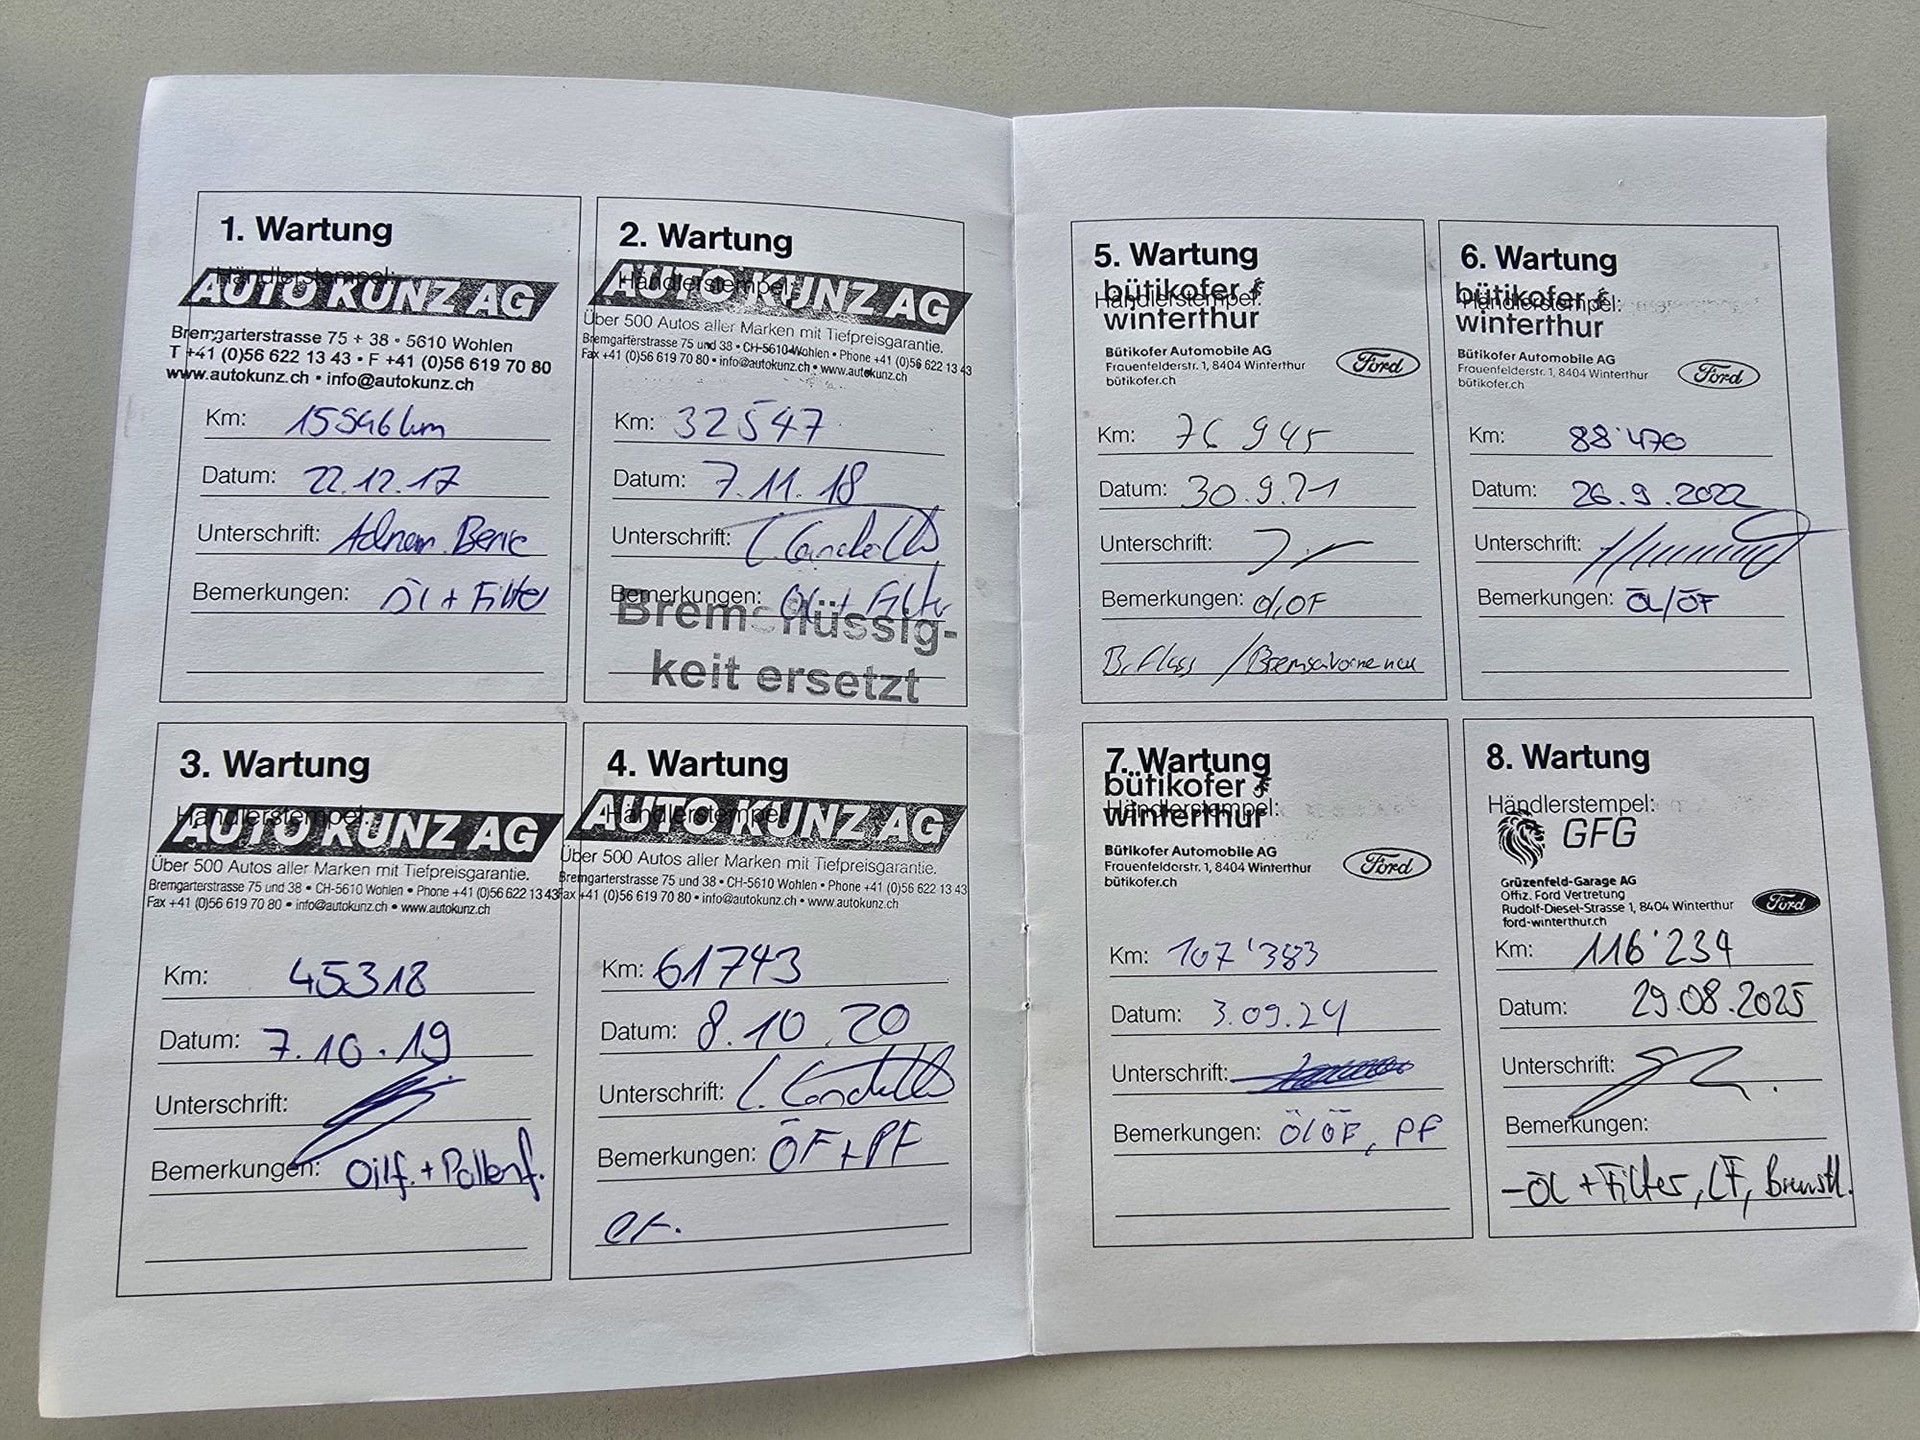 1. Wartung
Händlerstempel:
AUTO KUNZ AG
Bremgarterstrasse 75 + 38 • 5610 Wohlen
T +41 (0)56 622 13 43 • F +41 (0)56 619 70 80
www.autokunz.ch • info@autokunz.ch
Km: 15946 km
Datum: 22.12.17
Unterschrift:
Bemerkungen: Öl + Filter
2. Wartung
Händlerstempel:
AUTO KUNZ AG
Über 500 Autos aller Marken mit Tiefpreisgarantie.
Bremgarterstrasse 75 und 38 • CH-5610 Wohlen • Phone +41 (0)56 622 13 43
Fax +41 (0)56 619 70 80 • info@autokunz.ch • www.autokunz.ch
Km: 32547
Datum: 7.11.18
Unterschrift:
Bemerkungen: Öl + Filter
Bremsflüssig-
keit ersetzt
3. Wartung
Händlerstempel:
AUTO KUNZ AG
Über 500 Autos aller Marken mit Tiefpreisgarantie.
Bremgarterstrasse 75 und 38 • CH-5610 Wohlen • Phone +41 (0)56 622 13 43
Fax +41 (0)56 619 70 80 • info@autokunz.ch • www.autokunz.ch
Km: 45318
Datum: 7.10.19
Unterschrift:
Bemerkungen: Oilf. + Pollenf.
4. Wartung
Händlerstempel:
AUTO KUNZ AG
Über 500 Autos aller Marken mit Tiefpreisgarantie.
Bremgarterstrasse 75 und 38 • CH-5610 Wohlen • Phone +41 (0)56 622 13 43
Fax +41 (0)56 619 70 80 • info@autokunz.ch • www.autokunz.ch
Km: 61743
Datum: 8.10.20
Unterschrift:
Bemerkungen: ÖF + PF
er.
5. Wartung
Händlerstempel:
bütikofer
winterthur
Bütikofer Automobile AG
Frauenfelderstr. 1, 8404 Winterthur
bütikofer.ch
Ford
Km: 76 945
Datum: 30.9.21
Unterschrift:
Bemerkungen: öl, ÖF
B.flüss / Bremse vorne neu
6. Wartung
Händlerstempel:
bütikofer
winterthur
Bütikofer Automobile AG
Frauenfelderstr. 1, 8404 Winterthur
bütikofer.ch
Ford
Km: 88'470
Datum: 26.9.2022
Unterschrift:
Bemerkungen: ÖL/ÖF
7. Wartung
Händlerstempel:
bütikofer
winterthur
Bütikofer Automobile AG
Frauenfelderstr. 1, 8404 Winterthur
bütikofer.ch
Ford
Km: 107'383
Datum: 3.09.24
Unterschrift:
Bemerkungen: Öl ÖF, PF
8. Wartung
Händlerstempel:
GFG
Grüzenfeld-Garage AG
Offiz. Ford Vertretung
Rudolf-Diesel-Strasse 1, 8404 Winterthur
ford-winterthur.ch
Ford
Km: 116'234
Datum: 29.08.2025
Unterschrift:
Bemerkungen:
- ÖL + Filter, LF, Bremsfl.